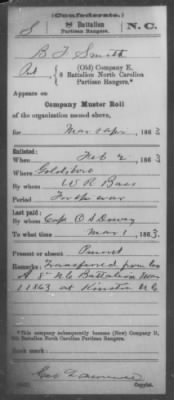 (Confederate.)
S 8 Battalion N. C.
Partisan Rangers.
B J Smith
Pvt, (Old) Company E,
8 Battalion North Carolina
Partisan Rangers.*
Appears on
Company Muster Roll
of the organization named above,
for Mar & Apr, 1863
Enlisted:
When Feb 2, 1863
Where Goldsboro
By whom W R Bass
Period For the war
Last paid:
By whom Capt O S Dewey
To what time Mar 1, 1863.
Present or absent Present
Remarks: Transferred from Co
A 8th N.C. Battalion Mar
1 1863 at Kinston N.C
*This company subsequently became (New) Company D,
8th Battalion North Carolina Partisan Rangers.
Book mark:
Copyist.